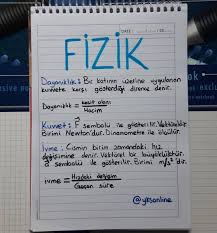 DATE:
FİZİK
Dayanıklık: Bir katının üzerine uygulanan
kuvvete karşı gösterdiği dirence denir.
Dayanıklık = kesit alanı
Hacim
Kuvvet: F sembolü ile gösterilir. Vektöreldir.
Birimi Newton'dur. Dinamometre ile ölçülür.
İvme: Cismin birim zamandaki hız
değişimine denir. Vektörel bir büyüklüktür.
a sembolü ile gösterilir. Birimi m/s² dir.
ivme = Hızdaki değişim
Geçen süre
@yksonline